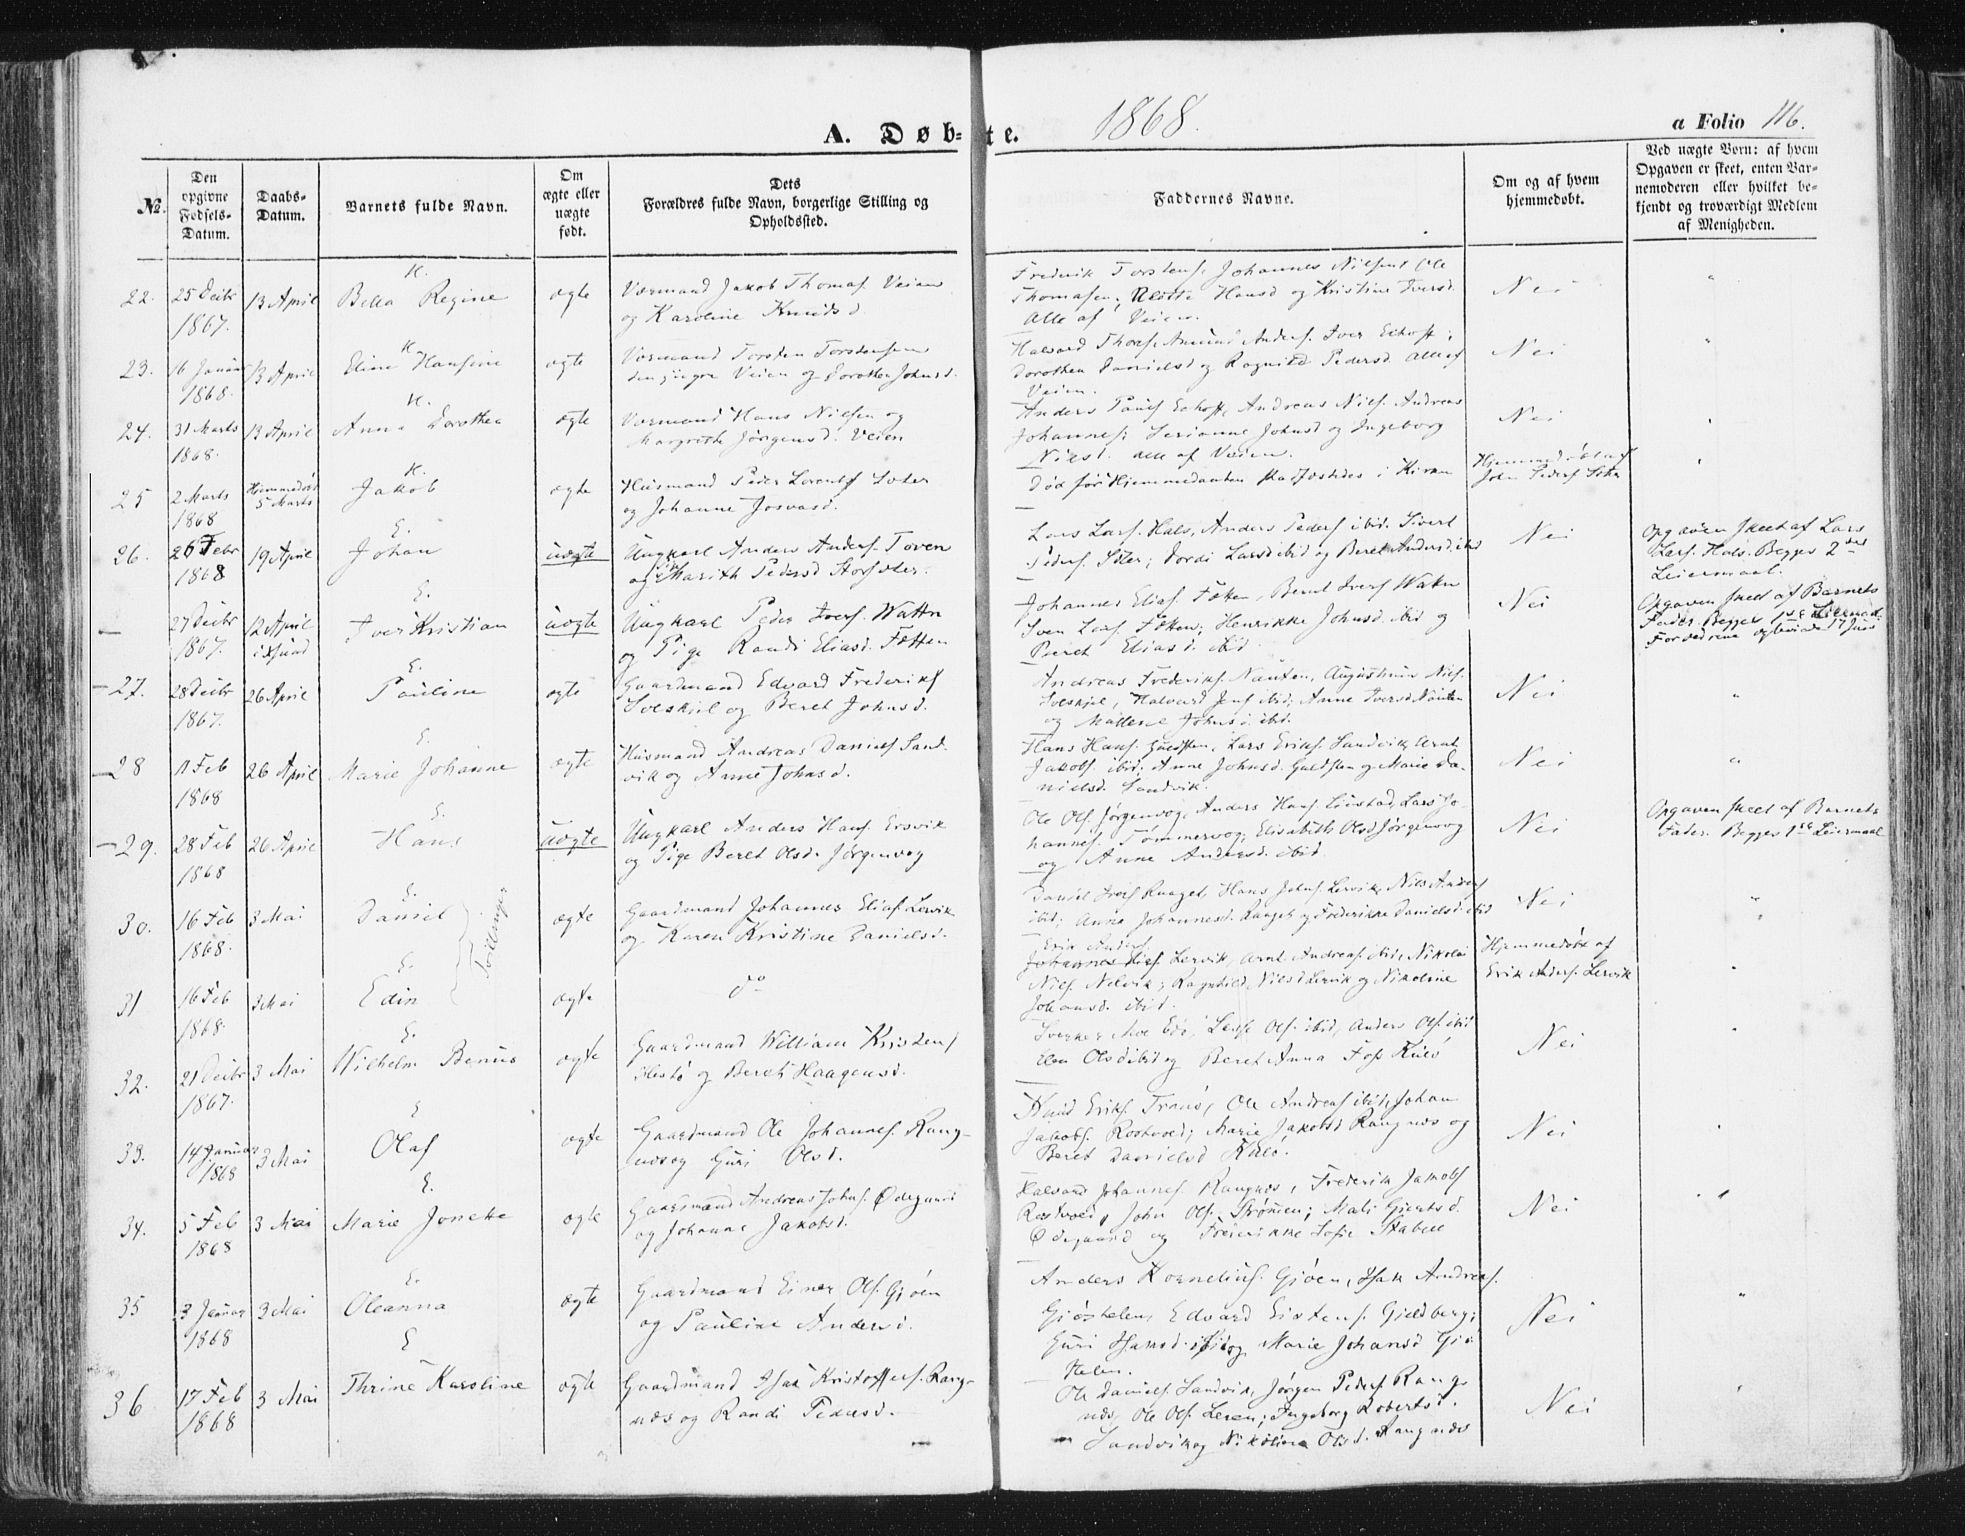 A. Døb-te. 1868. a Folio 116.
№
Den opgivne Fødsels-Datum.
Daabs-Datum.
Barnets fulde Navn.
Om ægte eller uægte født.
Dets Forældres fulde Navn, borgerlige Stilling og Opholdssted.
Faddernes Navne.
Om og af hvem hjemmedøbt.
Ved uægte Børn: af hvem Opgaven er skeet, enten Barnemoderen eller hvilket bekjendt og troværdigt Medlem af Menigheden.
22. 25 Decbr 1867. 13 April K. Bella Regine ægte
Værmand Jakob Thomas. Veien
og Karoline Knudsd.
Frederik Torstens. Johannes Nielsen Ole
Thomasen, Hansd og Kristine Iversd.
Alle af Veien. Nei "
23. 16 Januar 1868. 13 April K. Eline Hansine ægte
Værmand Torsten Torstensen
den yngre Veien og Dorothea Johnsd.
Halvard Thors. Amund Anders. Iver Echoff;
Dorothea Danielsd og Ragnild Pedersd. Alle af
Veien. Nei "
24. 31 Marts 1868. 13 April K. Anna Dorothea ægte
Værmand Hans Nielsen og
Margrethe Jörgensd. Veien
Anders Pauls Echoff, Andreas Niels. Andreas
Johannes; Serianne Johnsd og Ingeborg
Nielsd. alle af Veien. Nei
25 2 Marts 1868 Hjemmedøbt 5 Marts K. Jakob ægte
Husmand Peder Lorents Sæter
og Johanne Josvasd.
Død før Hjemmedaaben stadfæstedes i Kirken
Hjemmedøbt af
John Peders Sæter
26. 26 Febr 1868 19 April E. Johan uægte
Ungkarl Anders Anders. Toven
og Marith Pedersd Storsæter.
Lars Lars. Hals, Anders Peders ibid. Sivert
Peders. Sæter; Dordi Larsd ibid og Beret Andersd. ibid
Nei
Opgaven skeet af Lars
Lars. Hals. Begges 2det
Leiermaal.
27 Decbr 1867. 12 April E. Iver Kristian uægte
Ungkarl Peder Ivers. Watten
og Pige Randi Eliasd. Fætten
Johannes Elias. Fætten, Bernt Ivers Waten
Sven Lars. Fætten; Henrikke Johnsd. ibid og
Beret Eliasd. ibid. Nei
Opgaven skeet af Barnets
Fader. Begges 1ste Leiermaal.
27. 28 Decbr 1867. 26 April E. Pauline ægte
Gaardmand Edvard Frederiks
Solskjel og Beret Johnsd.
Andreas Frederiks. Nausten, Augustinus Niels.
Solskjel, Halvard Jens ibid; Anne Iversd Nausten
og Mallene Johnsd. ibid. Nei "
28 11 Feb 1868 26 April E. Marie Johanne ægte
Husmand Andreas Daniels Sand-
vik og Anne Johnsd.
Hans Hans. Guldsten, Lars Eriks. Sandvik, Arnt
Jakobs. ibid; Anne Johnsd. Guldsten og Marie Da-
nielsd. Sandvik. Nei "
29. 28 Feb 1868 26 April E. Hans uægte
Ungkarl Anders Hans. Ersvik
og Pige Beret Olsd. Jørgenvog
Ole Ols. Jørgenvog, Anders Hans. Liestad, Lars Jo-
hannes. Tømmervog; Elisabeth Olsd Jørgenvog
og Anne Andersd. ibid. Nei
Opgaven skeet af Barnets
Fader. Begges 1ste Leiermaal
30. 16 Feb 1868. 3 Mai E. Daniel Tvillinge ægte
Gaardmand Johannes Elias. Lervik
og Karen Kristine Danielsd.
Daniel Ivers Raaget, Hans Johns. Lervik, Niels Anders
ibid; Anne Johannesd. Raaget og Frederikke Danielsd. ibid
Nei "
31 16 Feb 1868. 3 Mai E. Edin ægte do
Erik Anders.
Johannes Elias. Lervik, Arnt Andreas. ibid, Nikolai
Niels Nelvik; Ragnhild Nielsd Lervik og Nikoline
Johansd. ibid.
Hjemmedøbt af
Erik Anders. Lervik
32. 21 Decbr 1867. 3 Mai E. Wilhelm Benus ægte
Gaardmand William Kristens
og Beret Haagensd.
Moe Edø, Lars Ols. ibid, Anders Ols. ibid
Ellen Olsd ibid og Beret Anna Foss Kulø Nei
33. 14 Januar 1868 3 Mai E Olaf ægte
Gaardmand Ole Johannes. Rang-
næs og Guri Olsd.
Knud Eriks. Tranø, Ole Andreas ibid, Johan
Jakobs. Rostvoed; Marie Jakobsd Rangnæs og
Beret Danielsd Kulø. Nei
34. 5 Feb 1868 3 Mai E. Marie Jonette ægte
Gaardmand Andreas Johns. Ødegaard
og Johanne Jakobsd.
Halvard Johannes. Rangnæs, Frederik Jakobs
Rostvoed, John Ols. Strømen; Mali Gjertsd.
Ødegaard og Frederikke Sofie Stabell Nei
35 3 Januar 1868 3 Mai E. Oleanna ægte
Gaardmand Einar Ols. Gjøen
og Pauline Andersd.
Anders Kornelius. Gjøen, Isak Andreas.
Gjøstelen, Edvard Eistens. Gjeldberg;
Guri Isaksd. ibid og Marie Johansd Gjø-
stelen. Nei "
36 17 Feb 1868 3 Mai E Thrine Karoline ægte
Gaardmand Isak Kristoffers. Rang-
næs og Randi Pedersd.
Ole Daniels. Sandvik, Jørgen Peders Rang-
næs, Ole Ols. Leren; Ingeborg Robertsd.
Sandvik og Nikoline Olsd. Rangnæs Nei